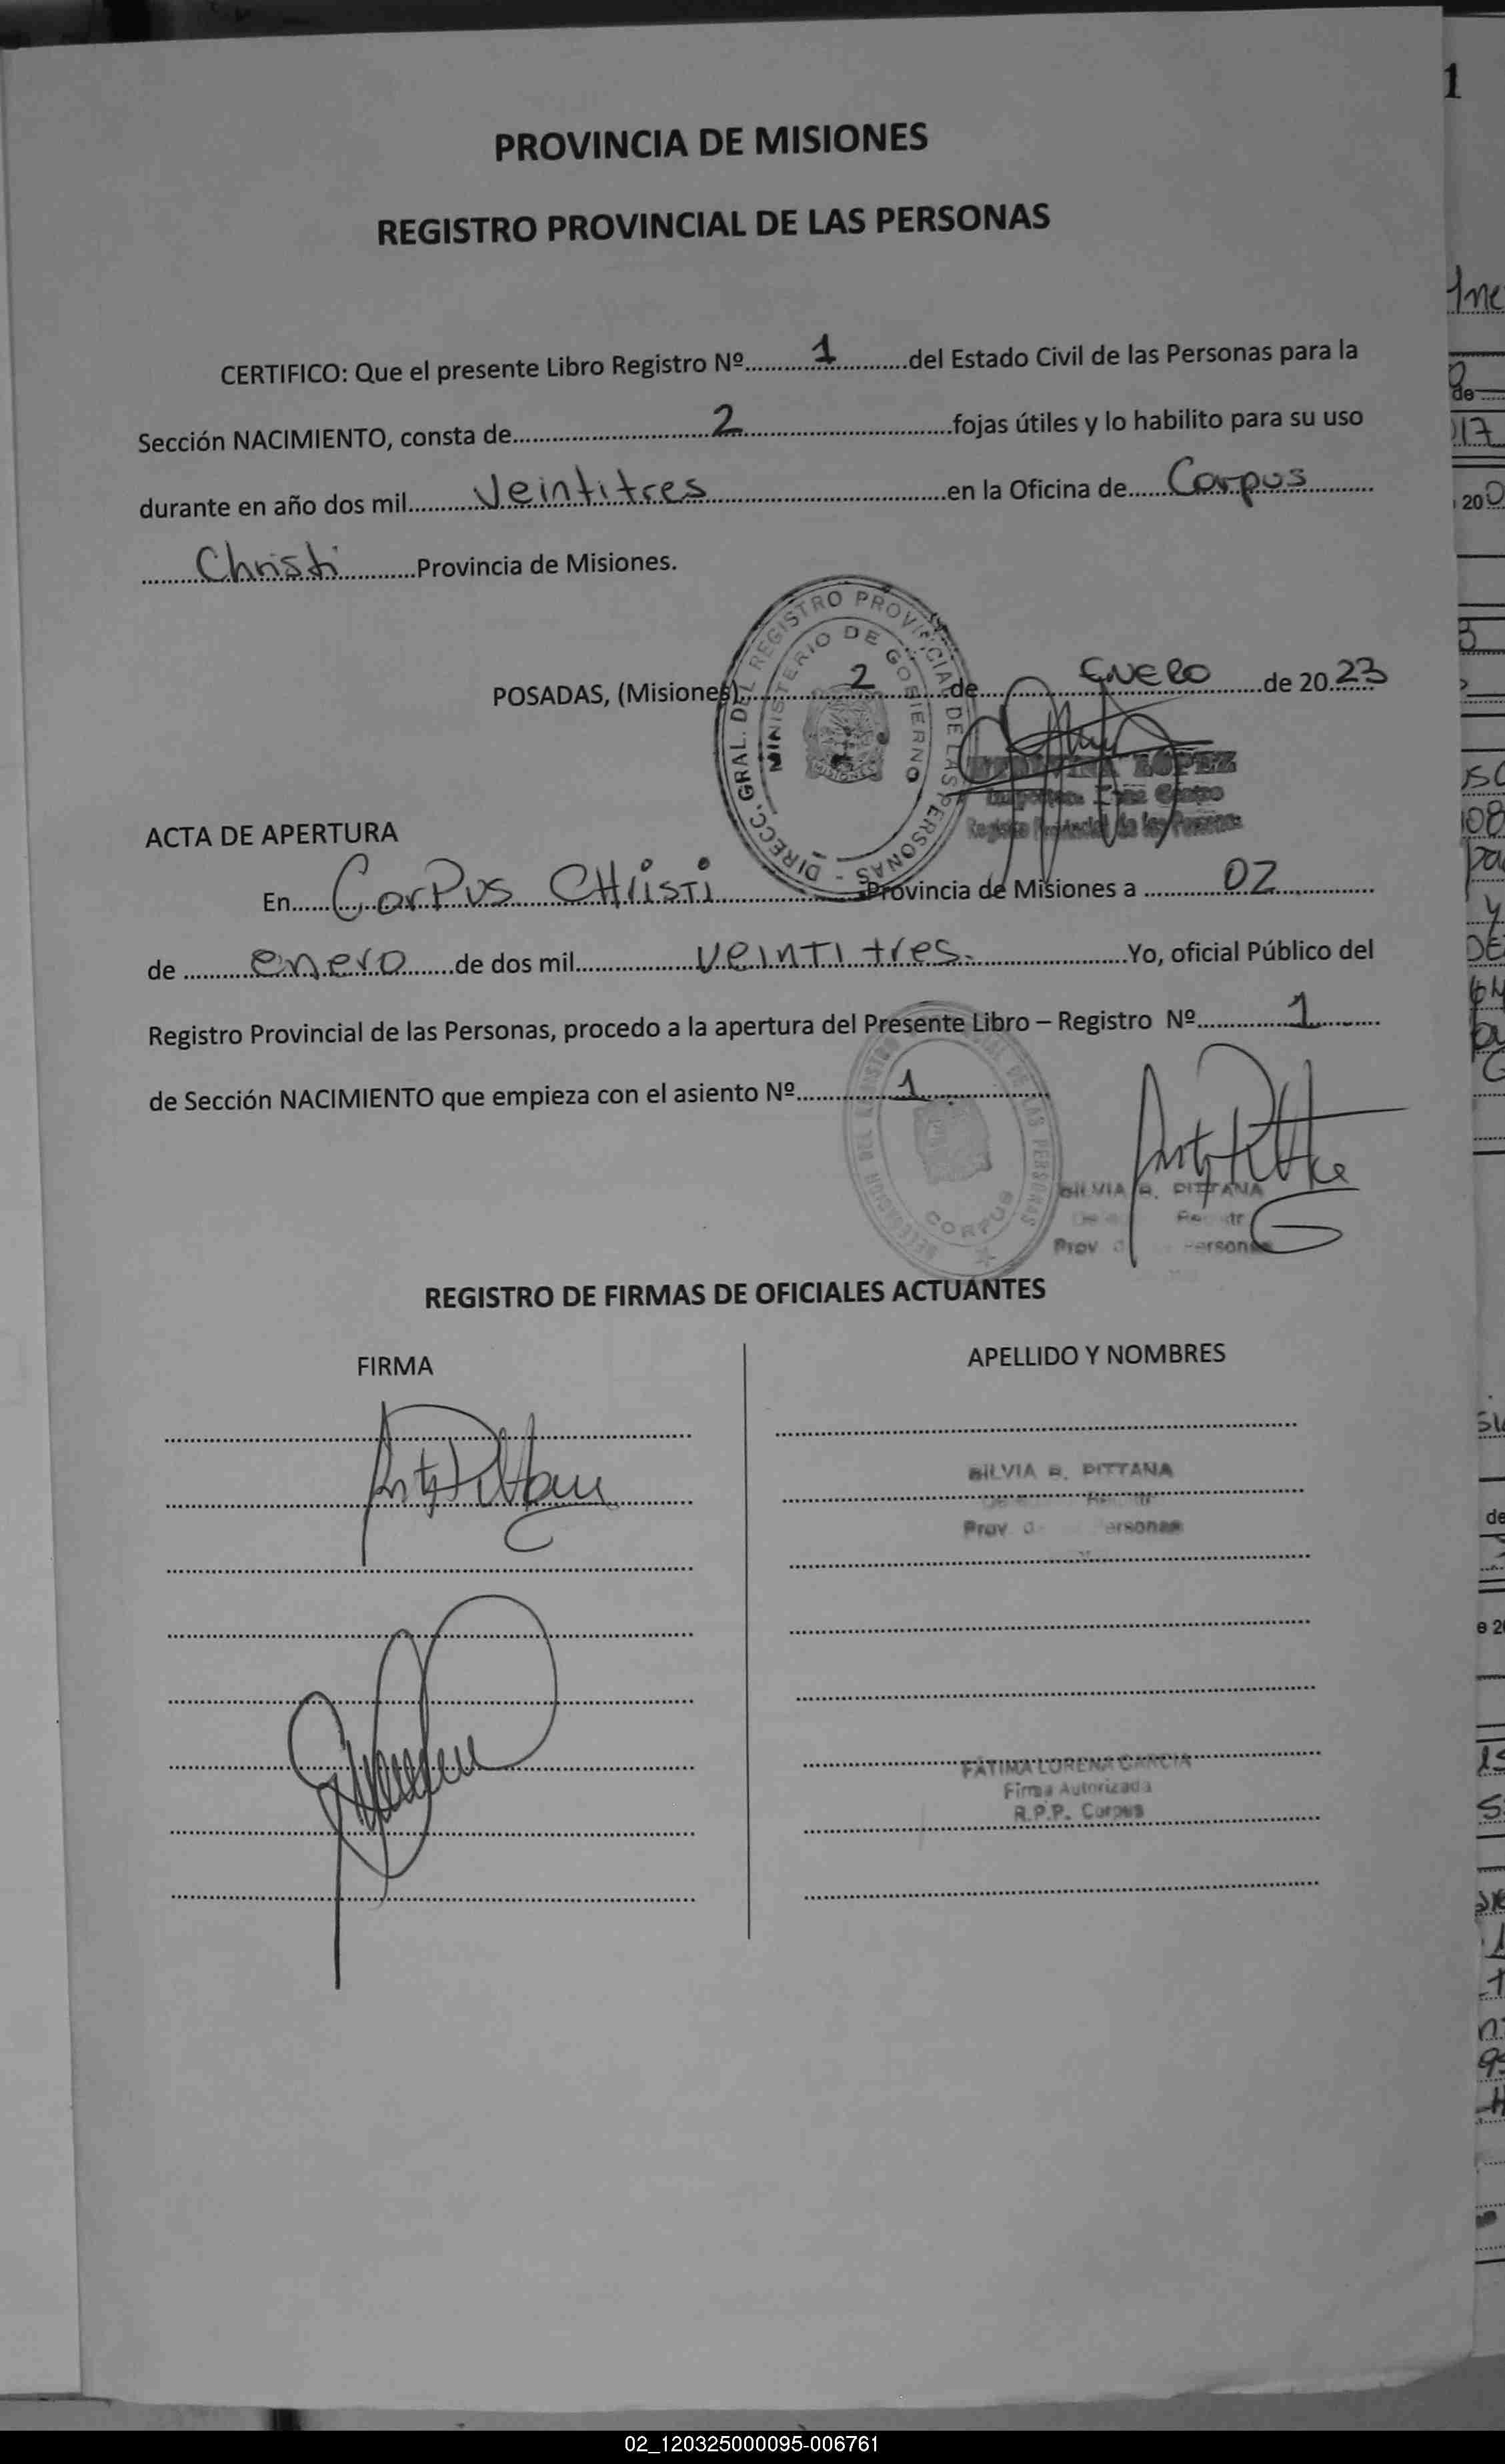 PROVINCIA DE MISIONES
REGISTRO PROVINCIAL DE LAS PERSONAS
CERTIFICO: Que el presente Libro Registro Nº 1 del Estado Civil de las Personas para la
Sección NACIMIENTO, consta de 2 fojas útiles y lo habilito para su uso
durante en año dos mil Veintitres en la Oficina de Corpus
Christi Provincia de Misiones.
DIRECC. GRAL. DEL REGISTRO PROVINCIAL DE LAS PERSONAS
MINISTERIO DE GOBIERNO
MISIONES
POSADAS, (Misiones) 2 de ENERO de 2023
LOPEZ
Registro Provincial de las Personas
ACTA DE APERTURA
En CorPus CHristi Provincia de Misiones a 02
de enero de dos mil veinti tres. Yo, oficial Público del
Registro Provincial de las Personas, procedo a la apertura del Presente Libro – Registro Nº 1
de Sección NACIMIENTO que empieza con el asiento Nº 1
CORPUS
SILVIA R. PITTANA
Prov
REGISTRO DE FIRMAS DE OFICIALES ACTUANTES
FIRMA
APELLIDO Y NOMBRES
SILVIA R. PITTANA
Prov. Personas
FÁTIMA LORENA GARCIA
Firma Autorizada
R.P.P. Corpus
1
02_120325000095-006761